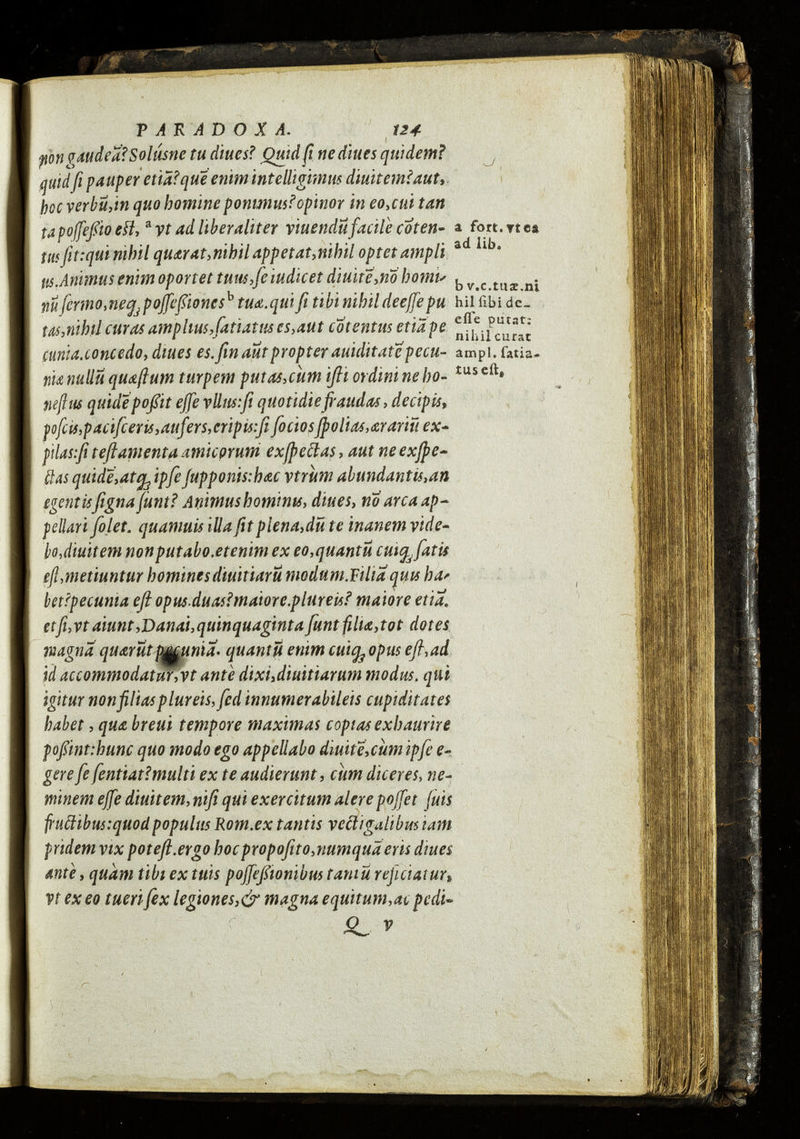 PARADOXA. 124
non gaudeā? Solúsne tu diues? Quid si ne diues quidem?
quid si pauper etiā? quē enim intelligimus diuitem? aut,
hoc verbū, in quo homine ponimus? opinor in eo, cui tan
ta possessio est, ᵃ vt ad liberaliter viuendū facilè cōten-
tus sit: qui nihil quærat, nihil appetat, nihil optet ampli
us. Animus enim oportet tuus, se iudicet diuitē, nō homi-
nū sermo, neq; possessiones ᵇ tuæ. qui si tibi nihil deesse pu
tas, nihil curas amplius, satiatus es, aut cōtentus etiā pe
cunia. concedo, diues es. sin aūt propter auiditatē pecu-
niæ nullū quæstum turpem putas, cùm isti ordini ne ho-
nestus quidē possit esse vllus: si quotidie fraudas, decipis,
poscis, pacisceris, aufers, eripis: si socios spolias, ærariū ex-
pilas: si testamenta amicorum exspectas, aut ne exspe-
ctas quidē, atq; ipse supponis: hæc vtrùm abundantis, an
egentis signa sunt? Animus hominis, diues, nō arca ap-
pellari solet. quamuis illa sit plena, dū te inanem vide-
bo, diuitem non putabo. etenim ex eo, quantū cuiq; satis
est, metiuntur homines diuitiarū modum. Filiā quis ha-
bet? pecunia est opus. duas? maiore. plureis? maiore etiā.
et si, vt aiunt, Danai, quinquaginta sunt filiæ, tot dotes
magnā quærūt pecuniā. quantū enim cuiq; opus est, ad
id accommodatur, vt antè dixi, diuitiarum modus. qui
igitur non filias plureis, sed innumerabileis cupiditates
habet, quæ breui tempore maximas copias exhaurire
possint: hunc quo modo ego appellabo diuitē, cùm ipse e-
gere se sentiat? multi ex te audierunt, cùm diceres, ne-
minem esse diuitem, nisi qui exercitum alere posset suis
fructibus: quod populus Rom. ex tantis vectigalibus iam
pridem vix potest. ergo hoc proposito, numquā eris diues
antè, quàm tibi ex tuis possessionibus tantū reijciatur,
vt ex eo tueri sex legiones, & magna equitum, ac pedi-
Q v
a fort. vt ea
ad lib.
b v.c. tuæ. ni
hil sibi de-
esse putat;
nihil curat
ampl. satia-
tus est.